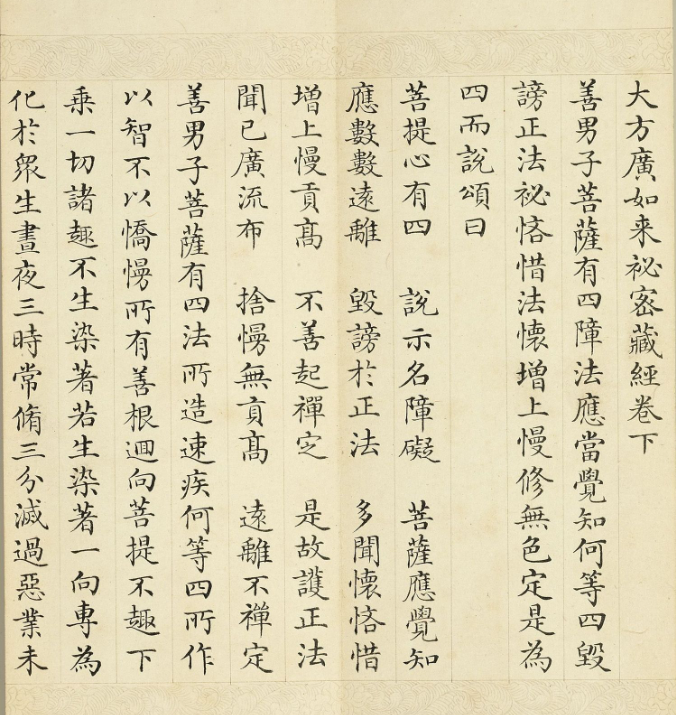 大方廣如来祕密藏經卷下
善男子菩薩有四障法應當覺知何等四毀
謗正法祕悋惜法懷增上慢修無色定是為
四而說頌曰
菩提心有四　說示名障礙　菩薩應覺知
應數數遠離　毀謗於正法　多聞懷悋惜
增上慢貢髙　不善起禪定　是故護正法
聞已廣流布　捨慢無貢髙　遠離不禪定
善男子菩薩有四法所造速疾何等四所作
以智不以憍慢所有善根迴向菩提不趣下
乗一切諸趣不生染著若生染著一向專為
化於眾生晝夜三時常脩三分滅過惡業未